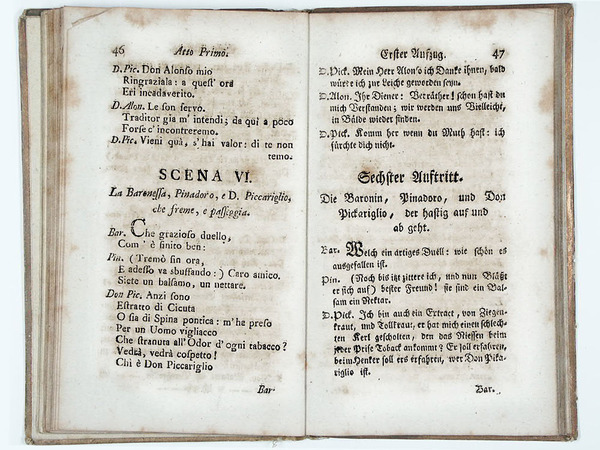 46 Atto Primo.
D. Pic. Don Alonso mio
Ringraziala: a quest' ora
Eri incadaverito.
D. Alon. Le son servo.
Traditor gia m' intendi; da quì a poco
Forse c' incontreremo.
D. Pic. Vieni quà, s'hai valor: di te non
temo.
SCENA VI.
La Baronessa, Pinadoro, e D. Piccariglio,
che freme, e passeggia.
Bar. Che grazioso duello,
Com' è finito ben:
Pin. ( Tremò sin ora,
E adesso va sbuffando: ) Caro amico.
Siete un balsamo, un nettare.
Don Pic. Anzi sono
Estratto di Cicuta
O sia di Spina pontica: m'ha preso
Per un Uomo vigliacco
Che stranuta all'Odor d'ogni tabacco?
Vedrà, vedrà cospetto!
Chi è Don Piccariglio
Bar
Erster Aufzug. 47
D. Pick. Mein Herr Alonso ich Danke ihnen, bald
würde ich zur Leiche geworden seyn.
D. Alon. Ihr Diener: Verräther! schon hast du
mich Verstanden; wir werden uns Vielleicht,
in Bälde wieder finden.
D. Pick. Komm her wenn du Muth hast: ich
fürchte dich nicht.
Sechster Auftritt.
Die Baronin, Pinadoro, und Don
Pickariglio, der hastig auf und
ab geht.
Bar. Welch ein artiges Duell: wie schön es
ausgefallen ist.
Pin. (Noch bis izt zittert ich, und nun Bläßt
er sich auf) bester Freund! sie sind ein Bal-
sam ein Nektar.
D. Pick. Ich bin auch ein Extract, von Ziegen-
kraut, und Tollkraut, er hat mich einen schlech-
ten Kerl gescholten, den das Niessen beim
jeder Prise Toback ankommt? Er soll erfahren,
beim Henker soll ers erfahren, wer Don Pika-
riglio ist.
Bar.